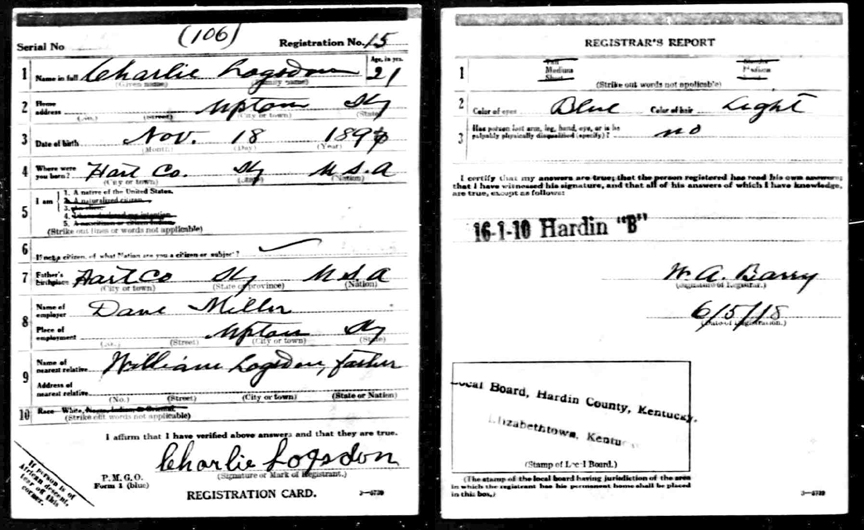 (106)
Serial No Registration No. 15
1 Name in full Charlie Logsdon Age, in yrs. 21
(Given name) (Family name)
2 Home address Upton Ky
(No.) (Street) (City or town) (State)
3 Date of birth Nov. 18
(Month) (Day) (Year)
4 Where were you born? Hart Co. Ky U.S.A
(City or town) (State) (Nation)
5 I am
1. A native of the United States.
2. A naturalized citizen.
3. An alien.
4. I have declared my intention
5. A noncitizen or citizen
(Strike out lines or words not applicable)
6 If not a citizen, of what Nation are you a citizen or subject?
7 Father's birthplace Hart Co Ky U.S.A
(City or town) (State or province) (Nation)
8 Name of employer Dave Miller
Place of employment Upton Ky
(No.) (Street) (City or town) (State)
9 Name of nearest relative William Logsdon, father
Address of nearest relative
(No.) (Street) (City or town) (State or Nation)
10 Race—White, Negro, Indian, or Oriental.
(Strike out words not applicable)
I affirm that I have verified above answers and that they are true.
Charlie Logsdon
(Signature or Mark of Registrant.)
P.M.G.O.
Form 1 (blue)
REGISTRATION CARD. 3—6739
If person is of
African descent,
tear off this
corner.
REGISTRAR'S REPORT
1 Tall Slender
Medium Medium
Short
(Strike out words not applicable)
2 Color of eyes Blue Color of hair Light
3 Has person lost arm, leg, hand, eye, or is he
palpably physically disqualified (specify)? no
I certify that my answers are true; that the person registered has read his own answers;
that I have witnessed his signature, and that all of his answers of which I have knowledge,
are true, except as follows:
16-1-10 Hardin "B"
W. A. Barry
(Signature of Registrar.)
6/5/18
(Date of Registration.)
Local Board, Hardin County, Kentucky.
Elizabethtown,
(Stamp of Local Board.)
(The stamp of the local board having jurisdiction of the area
in which the registrant has his permanent home shall be placed
in this box.) 3—6739